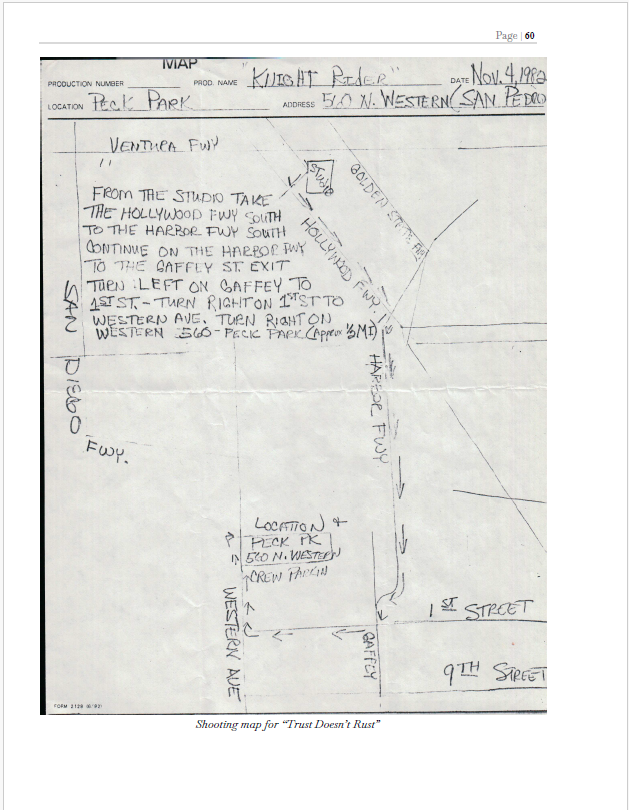 Page | 60
MAP
PRODUCTION NUMBER PROD. NAME "KNIGHT RIDER" DATE NOV. 4, 1982
LOCATION PECK PARK ADDRESS 560 N. WESTERN (SAN PEDRO
VENTURA FWY
STUDIO
GOLDEN STATE FWY
FROM THE STUDIO TAKE
THE HOLLYWOOD FWY SOUTH
TO THE HARBOR FWY SOUTH
CONTINUE ON THE HARBOR FWY
TO THE GAFFEY ST. EXIT
TURN LEFT ON GAFFEY TO
1ST ST. - TURN RIGHT ON 1ST ST TO
WESTERN AVE. TURN RIGHT ON
WESTERN 560 - PECK PARK (APPROX ½ MI)
HOLLYWOOD FWY.
SAN DIEGO
FWY.
HARBOR FWY
LOCATION +
PECK PK
560 N. WESTERN
CREW PARKIN
WESTERN AVE
GAFFEY
1ST STREET
9TH STREET
FORM 2128 (6/82)
Shooting map for "Trust Doesn't Rust"